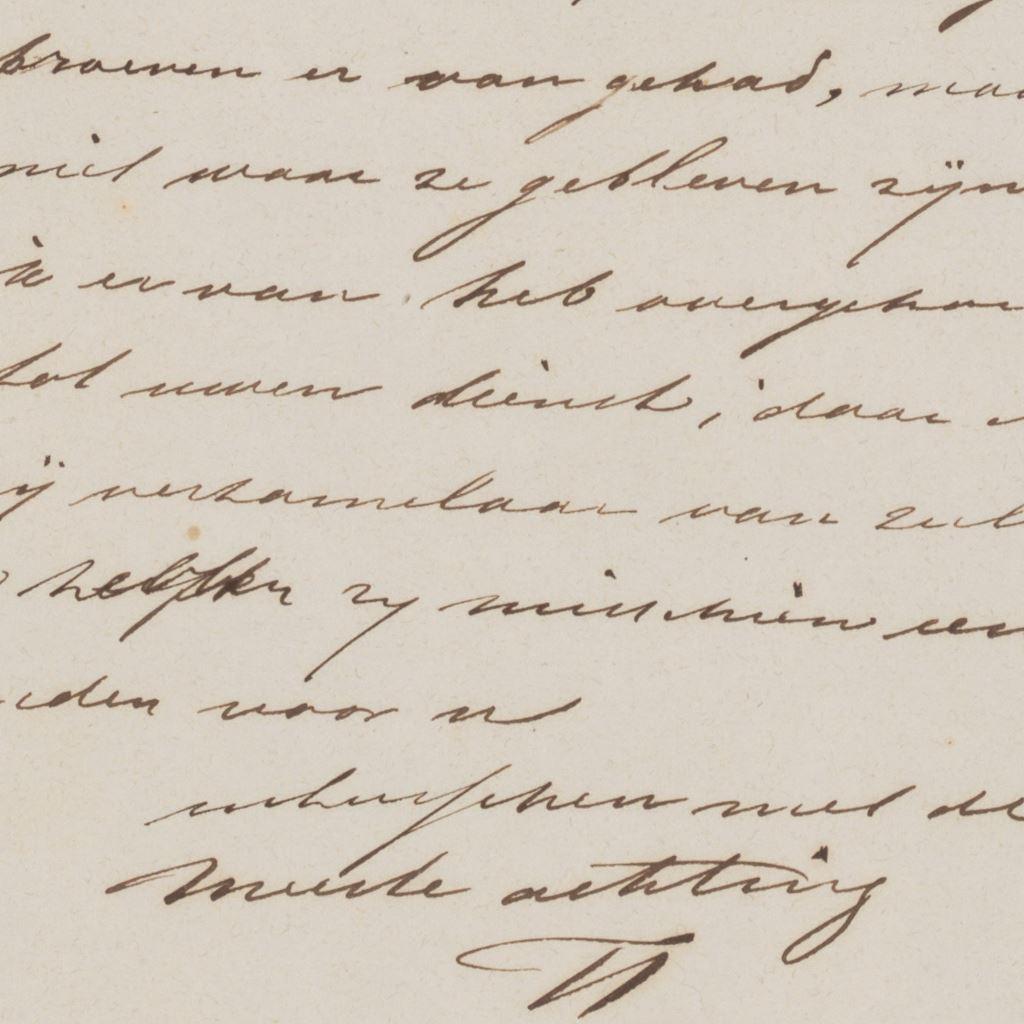 proeven er van gehad, maa
niet waar ze gebleven zijn
ik er van heb overgehou
tot uwen dienst, daar
ij verzamelaar van zul
hebben zy misschien een
rden voor u
intusschen met de
meeste achting